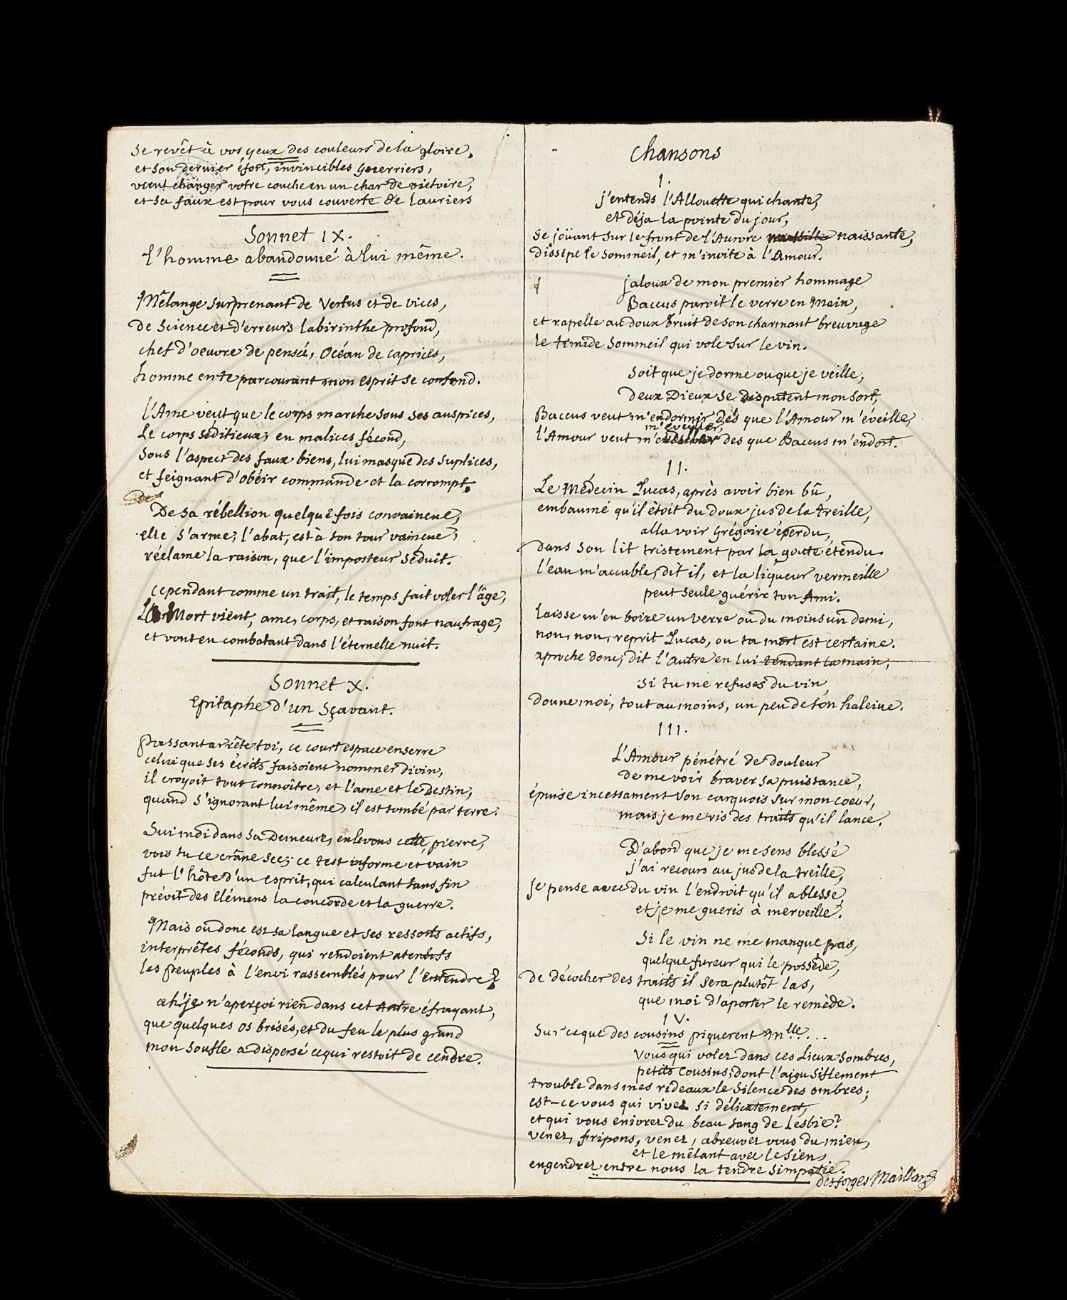 se revêt à vos yeux des couleurs de la gloire,
et son dernier éfort, invincibles guerriers,
vient changer votre couche en un char de victoire,
et sa faux est pour vous couverte de Lauriers
Sonnet IX.
l'homme abandonné à lui même.
Mêlange surprenant de Vertus et de vices,
De Science et d'erreurs labirinthe profond,
chef d'oeuvre de pensée, Océan de caprices,
homme en te parcourant mon esprit se confond.
l'Ame veut que le corps marche sous ses auspices,
Le corps séditieux, en malices fécond,
Sous l'aspect des faux biens, lui masque des suplices,
et feignant d'obéir commande et la corrompt.
De sa rébellion quelque fois convaincue,
elle s'arme, l'abat, est à son tour vaincue,
réclame la raison, que l'imposteur séduit.
cependant comme un trait, le temps fait voler l'âge,
La Mort vient, ame, corps, et raison font naufrage,
et vont en combatant dans l'éternelle nuit.
Sonnet X.
Epitaphe d'un Sçavant.
Passant arrête toi, ce court espace enserre
celui que ses écrits faisoient nommer divin,
il croyoit tout connoître, et l'ame et le Destin,
quand s'ignorant lui même, il est tombé par terre.
Sui moi dans sa Demeure, enlevons cette pierre,
vois tu ce crâne sec, ce test informe et vain
fut l'hôte d'un esprit, qui calculant sans fin
prévit des Elémens la concorde et la guerre.
Mais où donc est sa langue et ses ressorts actifs,
interprêtes féconds, qui rendoient atentifs
les Peuples à l'envi rassemblés pour l'entendre?
ah! je n'aperçoi rien dans cet Antre éfrayant,
que quelques os brisés, et du feu le plus grand
mon Soufle a dispersé ce qui restoit de cendre.
Chansons
I.
j'entends l'Allouette qui chante,
et déja la pointe du jour,
se joüant sur le front de l'Aurore naissante,
dissipe le sommeil, et m'invite à l'Amour.
jaloux de mon premier hommage
Baccus paroît le verre en main,
et rapelle au doux bruit de son charmant breuvage
le timide Sommeil qui vole sur le vin.
Soit que je dorme ou que je veille,
Deux Dieux se disputent mon sort,
Baccus veut m'endormir dès que l'Amour m'éveille,
m'éveiller,
l'Amour veut des que Baccus m'endort.
II.
Le Médecin Lucas, après avoir bien bû,
embaumé qu'il étoit du doux jus de la treille,
alla voir Grégoire éperdu,
dans son lit tristement par la goutte étendu.
l'eau m'accable, dit il, et la liqueur vermeille
peut seule guérir ton Ami.
laisse m'en boire un verre ou du moins un demi,
non, non, reprit Lucas, ou ta mort est certaine.
aproche donc, dit l'autre en lui tendant la main,
Si tu me refuses du vin,
donne moi, tout au moins, un peu de ton haleine.
III.
L'Amour pénétré de douleur
de me voir braver sa puissance,
épuise incessament son carquois sur mon coeur,
mais je me ris des traits qu'il lance.
D'abord que je me sens blessé
j'ai recours au jus de la treille,
Je pense avec du vin l'endroit qu'il a blessé,
et je me gueris à merveille.
Si le vin ne me manque pas,
quelque fureur qui le possède,
de décocher des traits il sera plutôt las,
que moi d'aporter le remède.
IV.
Sur ce que des cousins piquerent Mlle...
Vous qui volez dans ces Lieux sombres,
petits Cousins, dont l'aigu Siflement
trouble dans mes rideaux le Silence des ombres,
est-ce vous qui vivez si délicatement,
et qui vous enivrez du beau sang de Lesbie?
venez, fripons, venez, abreuvez vous du mien,
et le mêlant avec le sien,
engendrez entre nous la tendre Simpatie.
desforges Maillard